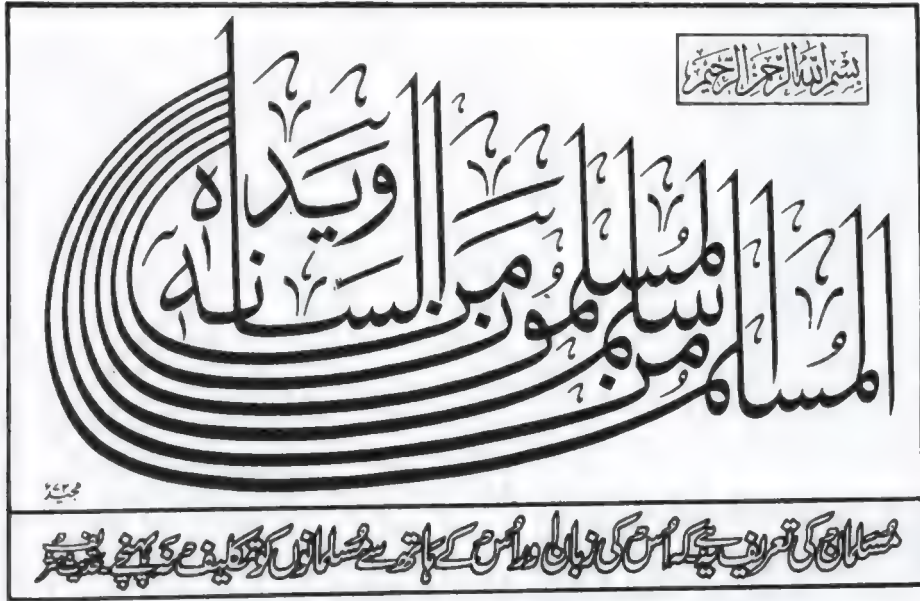 بِسْمِ اللهِ الرَّحْمٰنِ الرَّحِيْمِ
المُسلم من سلم المُسلمُون من لسانه ويداه
مجید
مُسلمان کی تعریف یہ ہے کہ اُس کی زبان اور اُس کے ہاتھ سے مُسلمانوں کو تکلیف نہ پہنچے